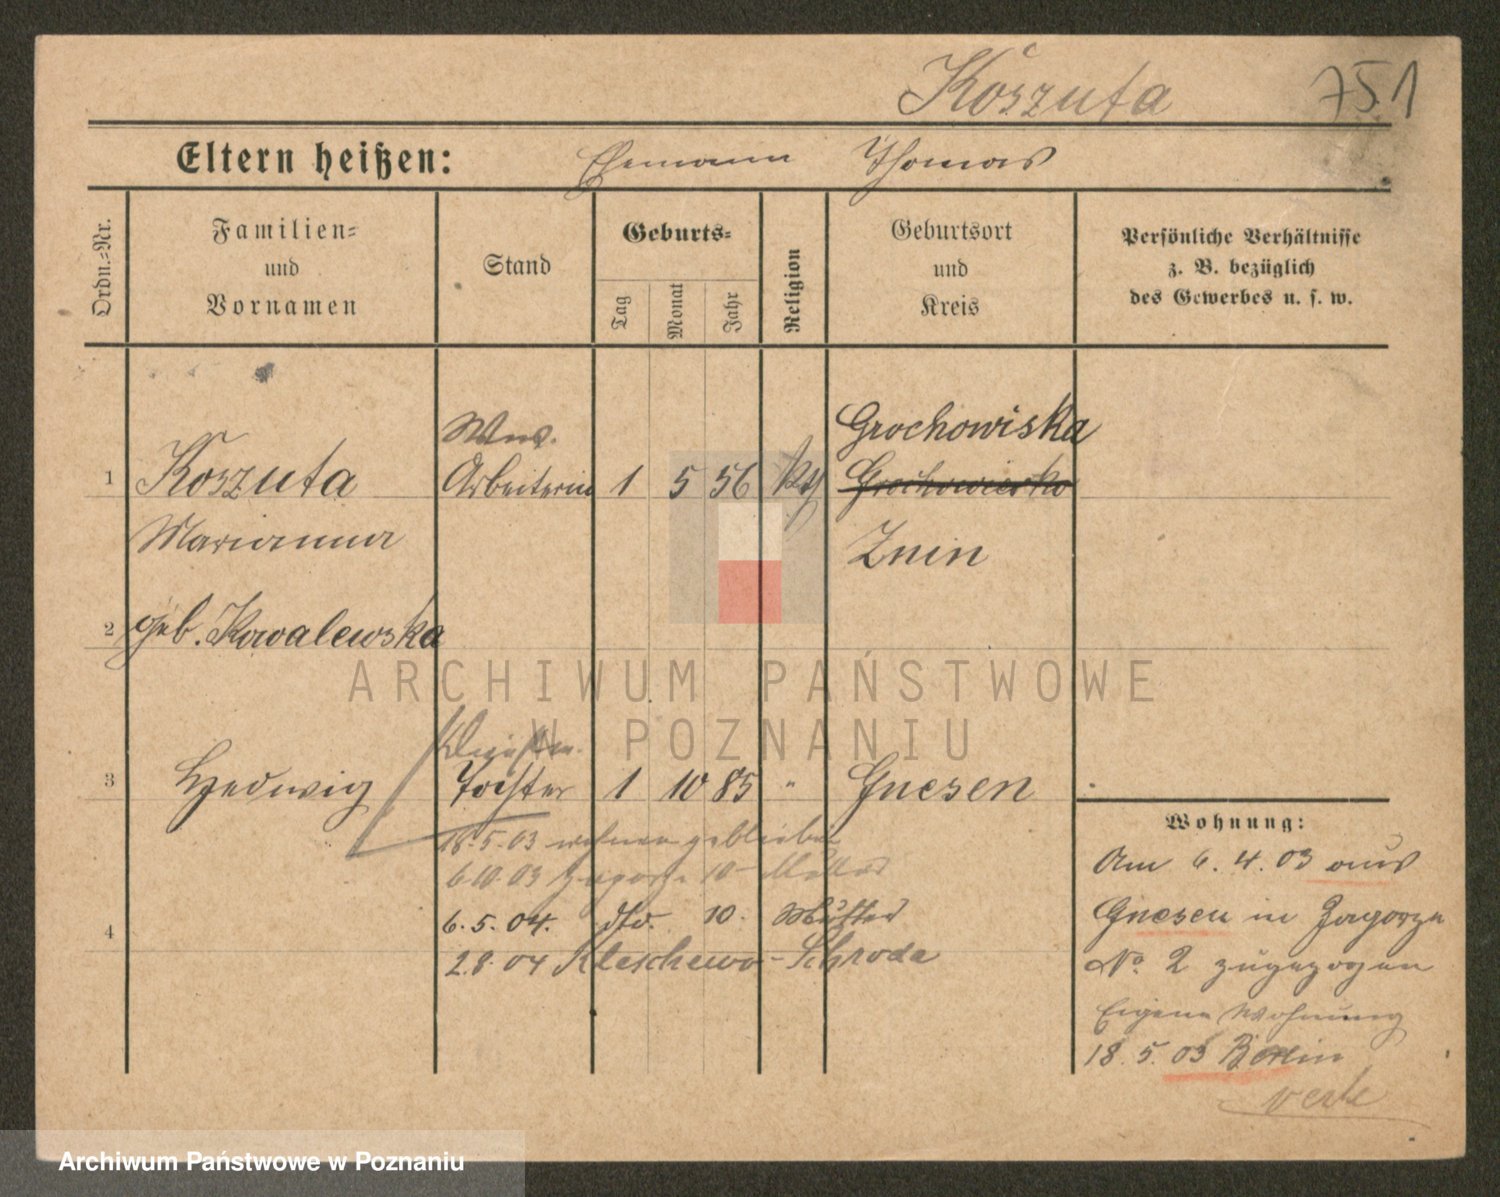 Koszuta 751
Eltern heißen: Ehemann Thomas
Ordn.-Nr.
Familien-
und
Vornamen
Stand
Geburts-
Tag
Monat
Jahr
Religion
Geburtsort
und
Kreis
Persönliche Verhältnisse
z. B. bezüglich
des Gewerbes u. s. w.
Wwe. Grochowiska
1 Koszuta Arbeiterin 1 5 56 kth Grochowiesko
Marianna Znin
2 geb. Kowalewska
ARCHIWUM PAŃSTWOWE
W POZNANIU
3 Hedwig Tochter 1 10 85 " Gnesen
18.5.03 wohnen geblieben
6.10.03 Zagorze 10
4 6.5.04. dto. 10.
2.8.04 Kleschewo - Schroda
Wohnung:
Am 6.4.03 aus
Gnesen in Zagorze
No. 2 zugezogen
Eigene Wohnung
18.5.03 Berlin
Archiwum Państwowe w Poznaniu